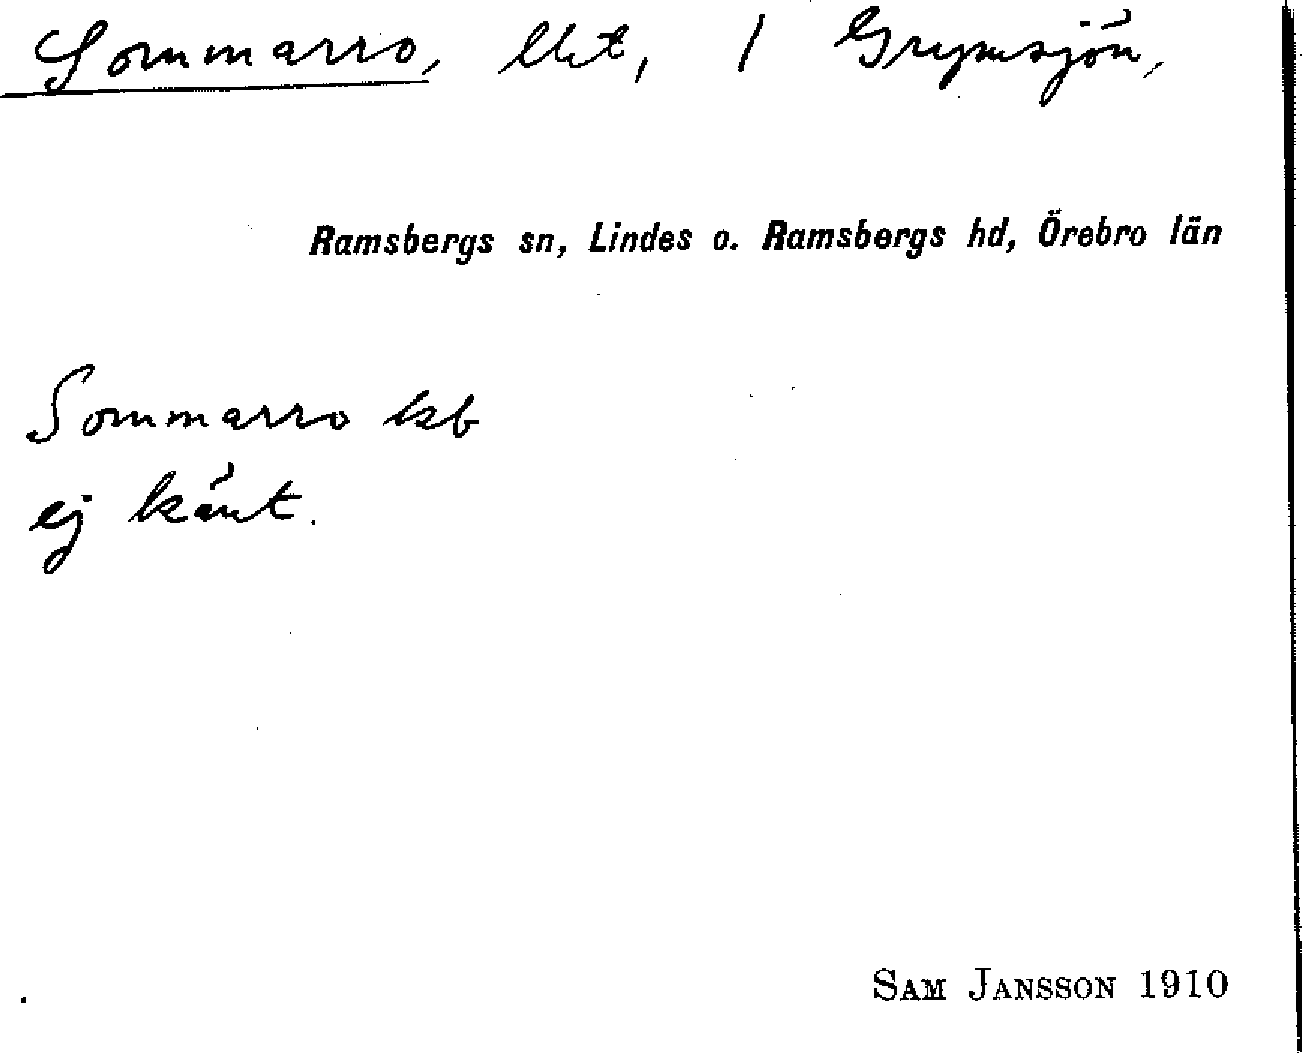 Sommarro, lht, / Grymsjön,
Ramsbergs sn, Lindes o. Ramsbergs hd, Örebro län
Sommarro kb
ej känt.
SAM JANSSON 1910